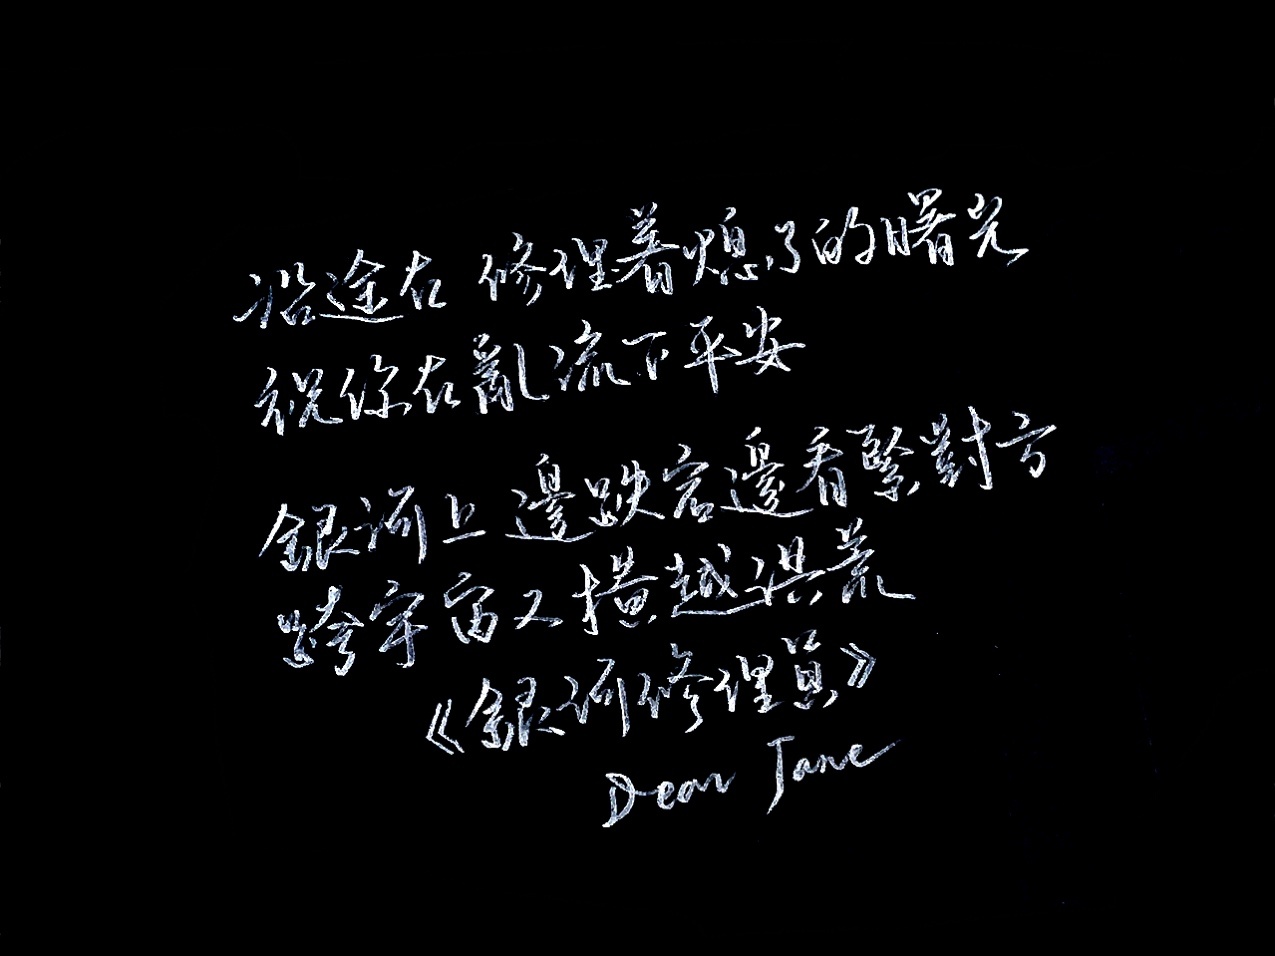 沿途在 修理着熄了的曙光
祝你在亂流下平安
銀河上 邊跌宕邊看緊對方
跨宇宙又橫越洪荒
《銀河修理員》
Dear Jane